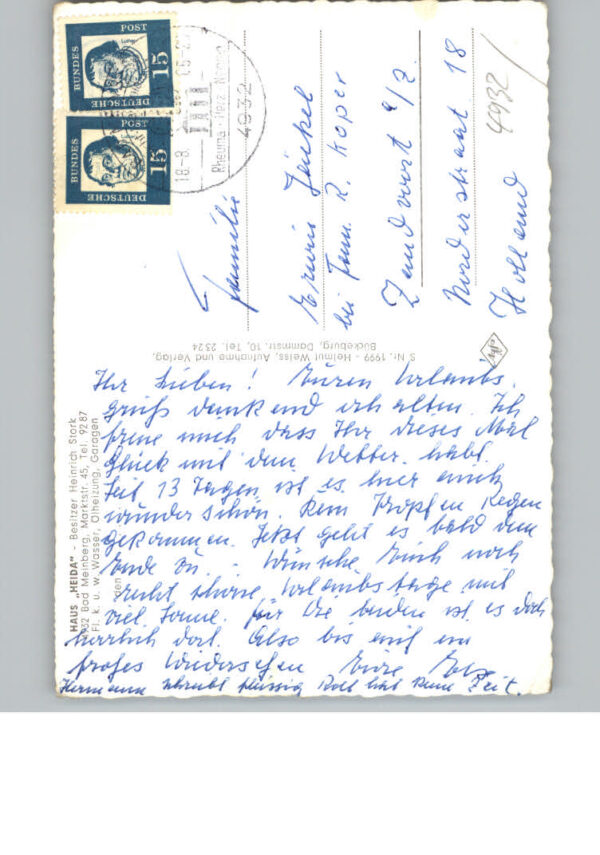 HAUS „HEIDA" - Besitzer Heinrich Stork
4932 Bad Meinberg, Marktstr. 45, Tel. 9287
Fl. k. u. w. Wasser, Ölheizung, Garagen
Ihr Lieben! Euren Urlaubs-
gruß dankend erhalten. Ich
freue mich dass Ihr dieses Mal
Glück mit dem Wetter habt.
Seit 13 Tagen ist es hier auch
wunderschön. Kein Tropfen Regen
gekommen. Jetzt geht es bald dem
Ende zu. - Wünsche Euch noch
recht schöne Urlaubstage mit
viel Sonne. Für die beiden ist es doch
herrlich dort. Also bis auf ein
frohes Wiedersehen Eure
Hermann schreibt fleissig Rolf hat keine Zeit.
S Nr. 1999 - Helmut Weiss, Aufnahme und Verlag,
Bückeburg, Dammstr. 10, Tel. 2324
Agfa
DEUTSCHE BUNDESPOST 15
DEUTSCHE BUNDESPOST 15
18.-8.
Rheuma - Herz
4932
Familie
Erwin
bei Fam. R. Koper
Zandvoort a/Z
Norderstraat 18
Holland
4932